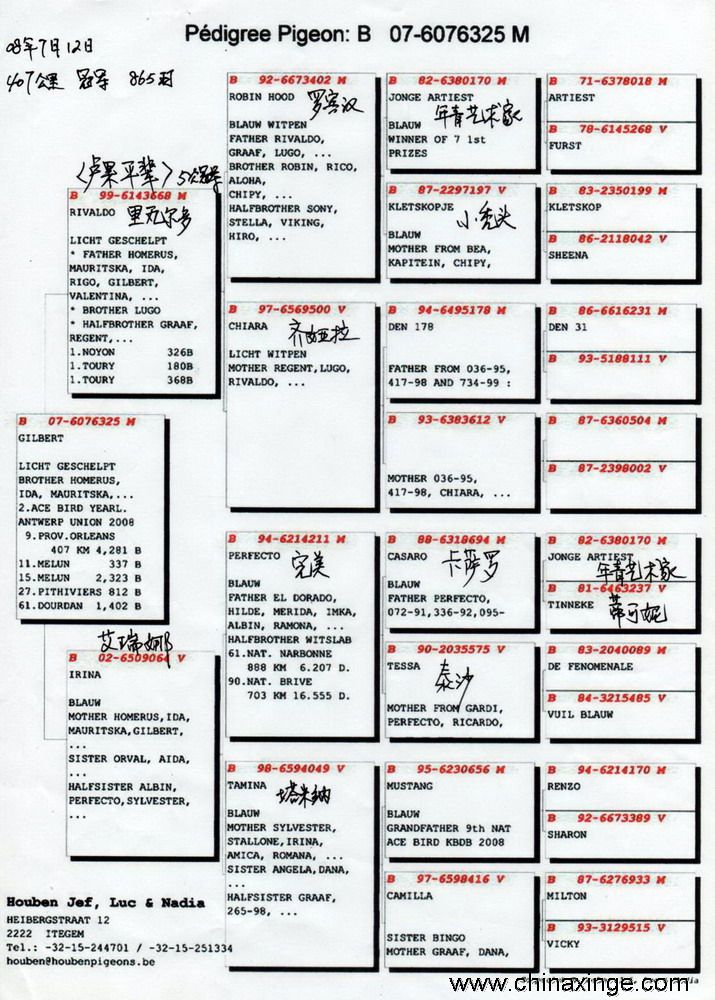 Pédigree Pigeon: B 07-6076325 M
08年7月12日
407公里 冠军 865羽
B 07-6076325 M
GILBERT
LICHT GESCHELPT
BROTHER HOMERUS,
IDA, MAURITSKA,...
2.ACE BIRD YEARL.
ANTWERP UNION 2008
9.PROV.ORLEANS
407 KM 4,281 B
11.MELUN 337 B
15.MELUN 2,323 B
27.PITHIVIERS 812 B
61.DOURDAN 1,402 B
B 99-6143668 M
RIVALDO 里瓦尔多
LICHT GESCHELPT
* FATHER HOMERUS,
MAURITSKA, IDA,
RIGO, GILBERT,
VALENTINA, ...
* BROTHER LUGO
* HALFBROTHER GRAAF,
REGENT,...
1.NOYON 326B
1.TOURY 180B
1.TOURY 368B
艾瑞娜
B 02-6509064 V
IRINA
BLAUW
MOTHER HOMERUS,IDA,
MAURITSKA,GILBERT,
...
SISTER ORVAL, AIDA,
...
HALFSISTER ALBIN,
PERFECTO,SYLVESTER,
...
B 92-6673402 M
ROBIN HOOD 罗宾汉
BLAUW WITPEN
FATHER RIVALDO,
GRAAF, LUGO, ...
BROTHER ROBIN, RICO,
ALOHA,
CHIPY, ...
HALFBROTHER SONY,
STELLA, VIKING,
HIRO, ...
B 97-6569500 V
CHIARA 齐娅拉
LICHT WITPEN
MOTHER REGENT,LUGO,
RIVALDO, ...
B 94-6214211 M
PERFECTO 完美
BLAUW
FATHER EL DORADO,
HILDE, MERIDA, IMKA,
ALBIN, RAMONA, ...
HALFBROTHER WITSLAB
61.NAT. NARBONNE
888 KM 6.207 D.
90.NAT. BRIVE
703 KM 16.555 D.
B 98-6594049 V
TAMINA 塔米纳
BLAUW
MOTHER SYLVESTER,
STALLONE,IRINA,
AMICA, ROMANA, ...
SISTER ANGELA,DANA,
...
HALFSISTER GRAAF,
265-98, ...
B 82-6380170 M
JONGE ARTIEST
年青艺术家
BLAUW
WINNER OF 7 1st
PRIZES
B 87-2297197 V
KLETSKOPJE
小秃头
BLAUW
MOTHER FROM BEA,
KAPITEIN, CHIPY,
B 94-6495178 M
DEN 178
FATHER FROM 036-95,
417-98 AND 734-99 :
B 93-6383612 V
MOTHER 036-95,
417-98, CHIARA, ...
B 88-6318694 M
CASARO 卡萨罗
BLAUW
FATHER PERFECTO,
072-91,336-92,095-
B 90-2035575 V
TESSA 泰沙
MOTHER FROM GARDI,
PERFECTO, RICARDO,
B 95-6230656 M
MUSTANG
BLAUW
GRANDFATHER 9th NAT
ACE BIRD KBDB 2008
B 97-6598416 V
CAMILLA
SISTER BINGO
MOTHER GRAAF, DANA,
B 71-6378018 M
ARTIEST
B 78-6145268 V
FURST
B 83-2350199 M
KLETSKOP
B 86-2118042 V
SHEENA
B 86-6616231 M
DEN 31
B 93-5188111 V
B 87-6360504 M
B 87-2398002 V
B 82-6380170 M
JONGE ARTIEST
年青艺术家
B 81-6463237 V
TINNEKE 蒂可妮
B 83-2040089 M
DE FENOMENALE
B 84-3215485 V
VUIL BLAUW
B 94-6214170 M
RENZO
B 92-6673389 V
SHARON
B 87-6276933 M
MILTON
B 93-3129515 V
VICKY
Houben Jef, Luc & Nadia
HEIBERGSTRAAT 12
2222 ITEGEM
Tel.: -32-15-244701 / -32-15-251334
houben@houbenpigeons.be
www.chinaxinge.com